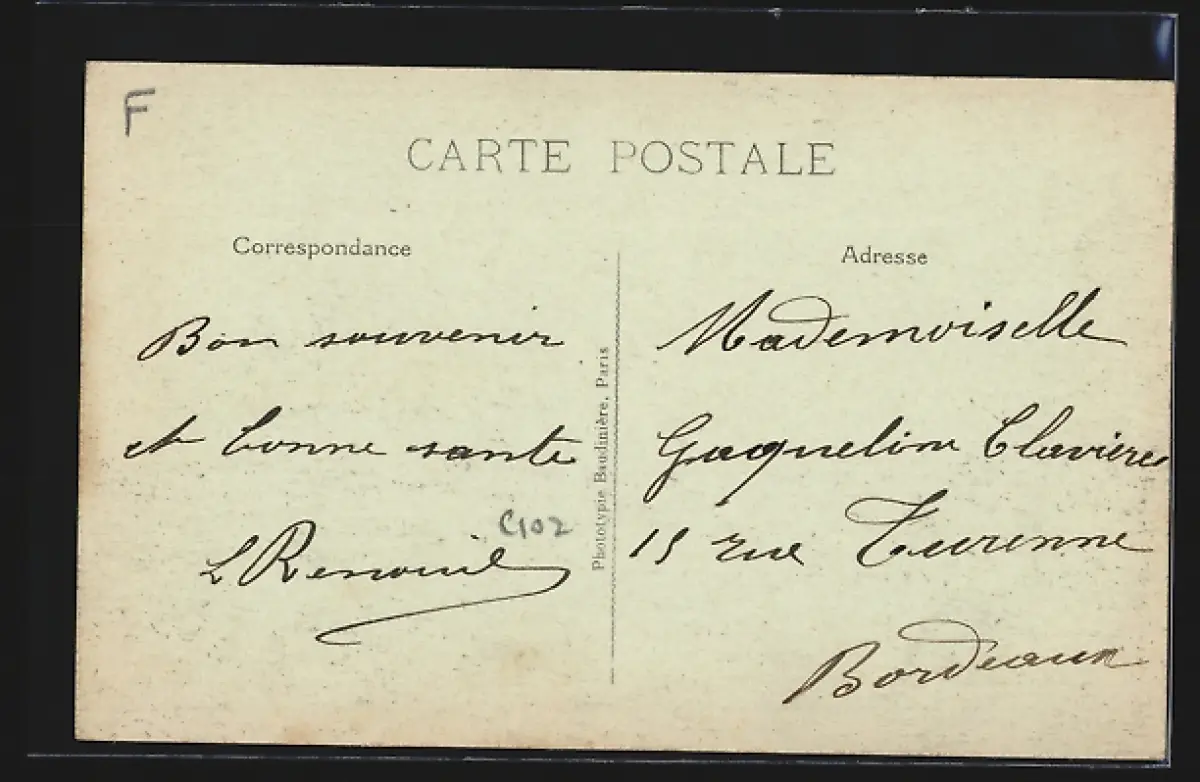 F
CARTE POSTALE
Correspondance
Bon souvenir
et bonne sante
C102
Phototypie Baudinière, Paris
Adresse
Mademoiselle
Jaqueline Clavières
15 rue Turenne
Bordeaux